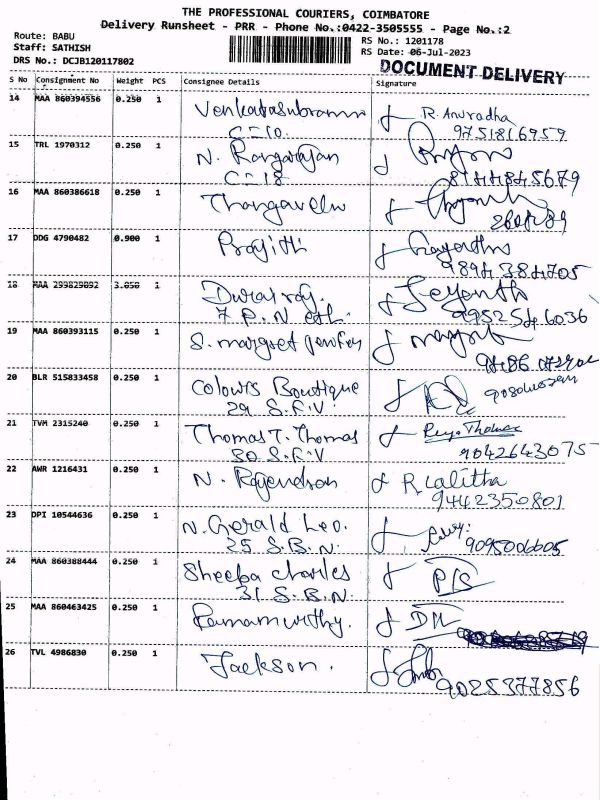 THE PROFESSIONAL COURIERS, COIMBATORE
Delivery Runsheet - PRR - Phone No.:0422-3505555 - Page No.:2
Route: BABU
Staff: SATHISH
DRS No.: DCJB120117802
RS No.: 1201178
RS Date: 06-Jul-2023
DOCUMENT DELIVERY
S No Consignment No Weight PCS Consignee Details Signature
14 MAA 860394556 0.250 1 Venkatasubramn R. Anuradha
C-10. 9751816959
15 TRL 1970312 0.250 1 N. Rangarajan
C-18 8144845679
16 MAA 860386618 0.250 1 Thangavelu
17 DDG 4790482 0.900 1 Prajith
9894384705
18 MAA 299829892 3.050 1 Durairaj. Jeyanth
7 P.N 9952546036
19 MAA 860393115 0.250 1 S. margret
20 BLR 515833458 0.250 1 Colours Boutique
29 S.F.V
21 TVM 2315240 0.250 1 Thomas T. Thomas Thomas
30 S.F.V 9042643075
22 AWR 1216431 0.250 1 N. Rajendran R. Lalitha
9442350801
23 DPI 10544636 0.250 1 N. Gerald Leo.
25 S.B.N. 9095006605
24 MAA 860388444 0.250 1 Sheeba charles
31 S.B.N.
25 MAA 860463425 0.250 1 Ramamurthy.
26 TVL 4986830 0.250 1 Jackson.
9025377856